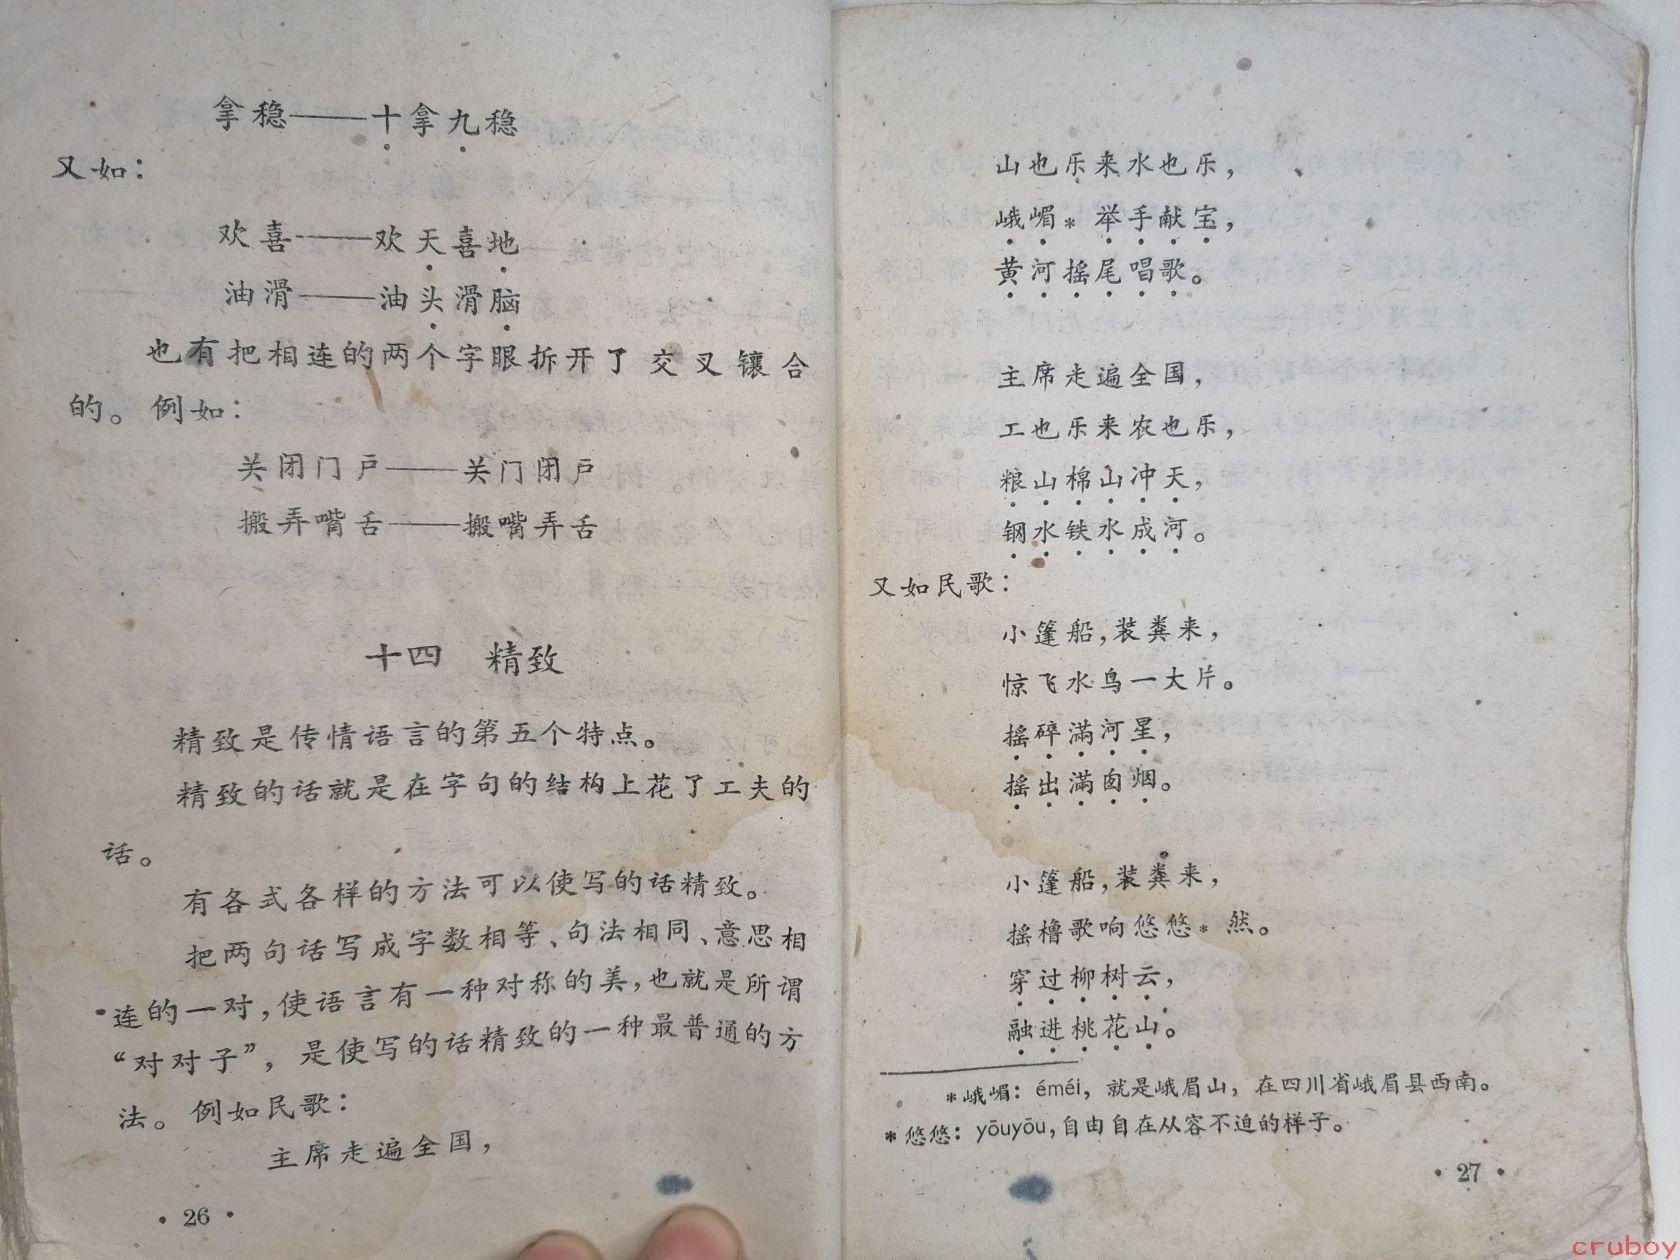 拿稳——十拿九稳
又如：
欢喜——欢天喜地
油滑——油头滑脑
也有把相连的两个字眼拆开了交叉镶合
的。例如：
关闭门户——关门闭户
搬弄嘴舌——搬嘴弄舌
十四 精致
精致是传情语言的第五个特点。
精致的话就是在字句的结构上花了工夫的
话。
有各式各样的方法可以使写的话精致。
把两句话写成字数相等、句法相同、意思相
连的一对，使语言有一种对称的美，也就是所谓
“对对子”，是使写的话精致的一种最普通的方
法。例如民歌：
主席走遍全国，
·26·
山也乐来水也乐，
峨嵋* 举手献宝，
黄河摇尾唱歌。
主席走遍全国，
工也乐来农也乐，
粮山棉山冲天，
钢水铁水成河。
又如民歌：
小篷船，装粪来，
惊飞水鸟一大片。
摇碎满河星，
摇出满囱烟。
小篷船，装粪来，
摇橹歌响悠悠* 然。
穿过柳树云，
融进桃花山。
*峨嵋：éméi，就是峨眉山，在四川省峨眉县西南。
*悠悠：yōuyōu，自由自在从容不迫的样子。
·27·
cruboy